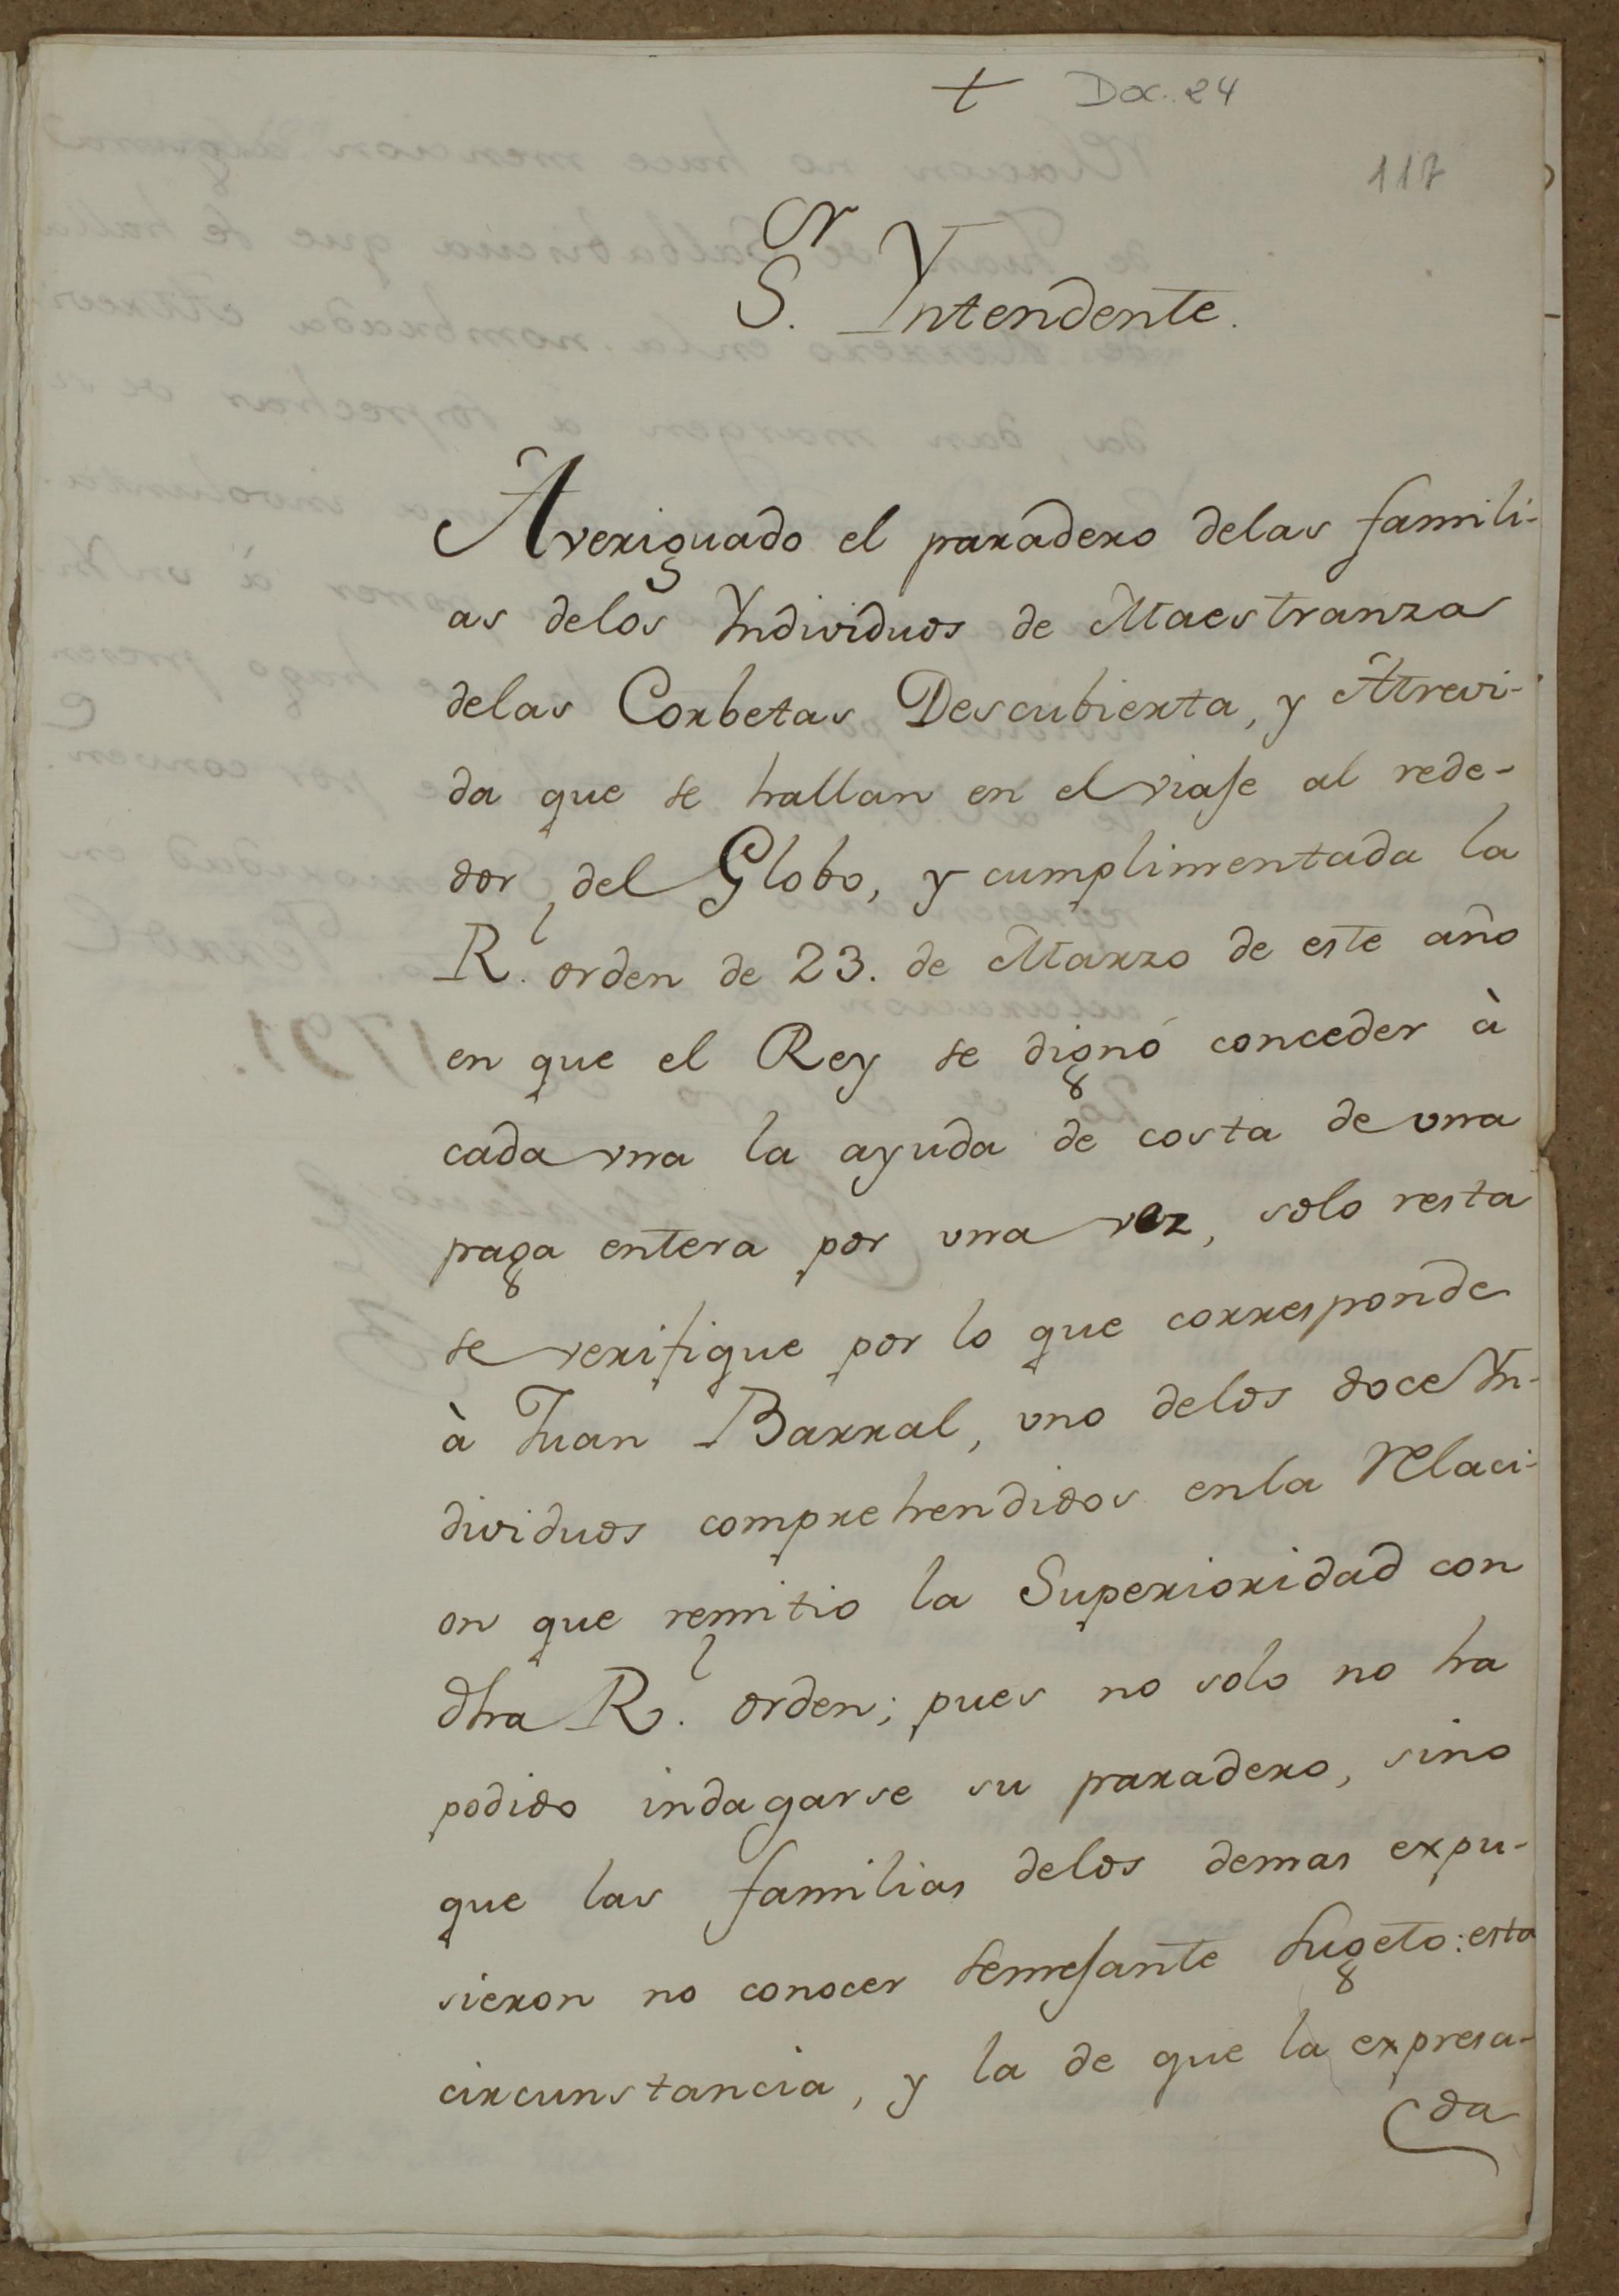 + Doc. 24
117
S.r Yntendente.
Averiguado el paradero delas famili-
as delos Yndividuos de Maestranza
delas Corbetas Descubierta, y Atrevi-
da que se hallan en el viaje al rede-
dor del Globo, y cumplimentada la
R.l orden de 23. de Marzo de este año
en que el Rey se dignó conceder à
cada vna la ayuda de costa de vna
paga entera por vna vez, solo resta
se verifique por lo que corresponde
à Juan Barral, vno delos doce Yn-
dividuos comprehendidos enla Relaci-
on que remitio la Superioridad con
dha R.l orden; pues no solo no ha
podido indagarse su paradero, sino
que las familias delos demas expu-
sieron no conocer semejante Sugeto: esta
circunstancia, y la de que la expresa-
da